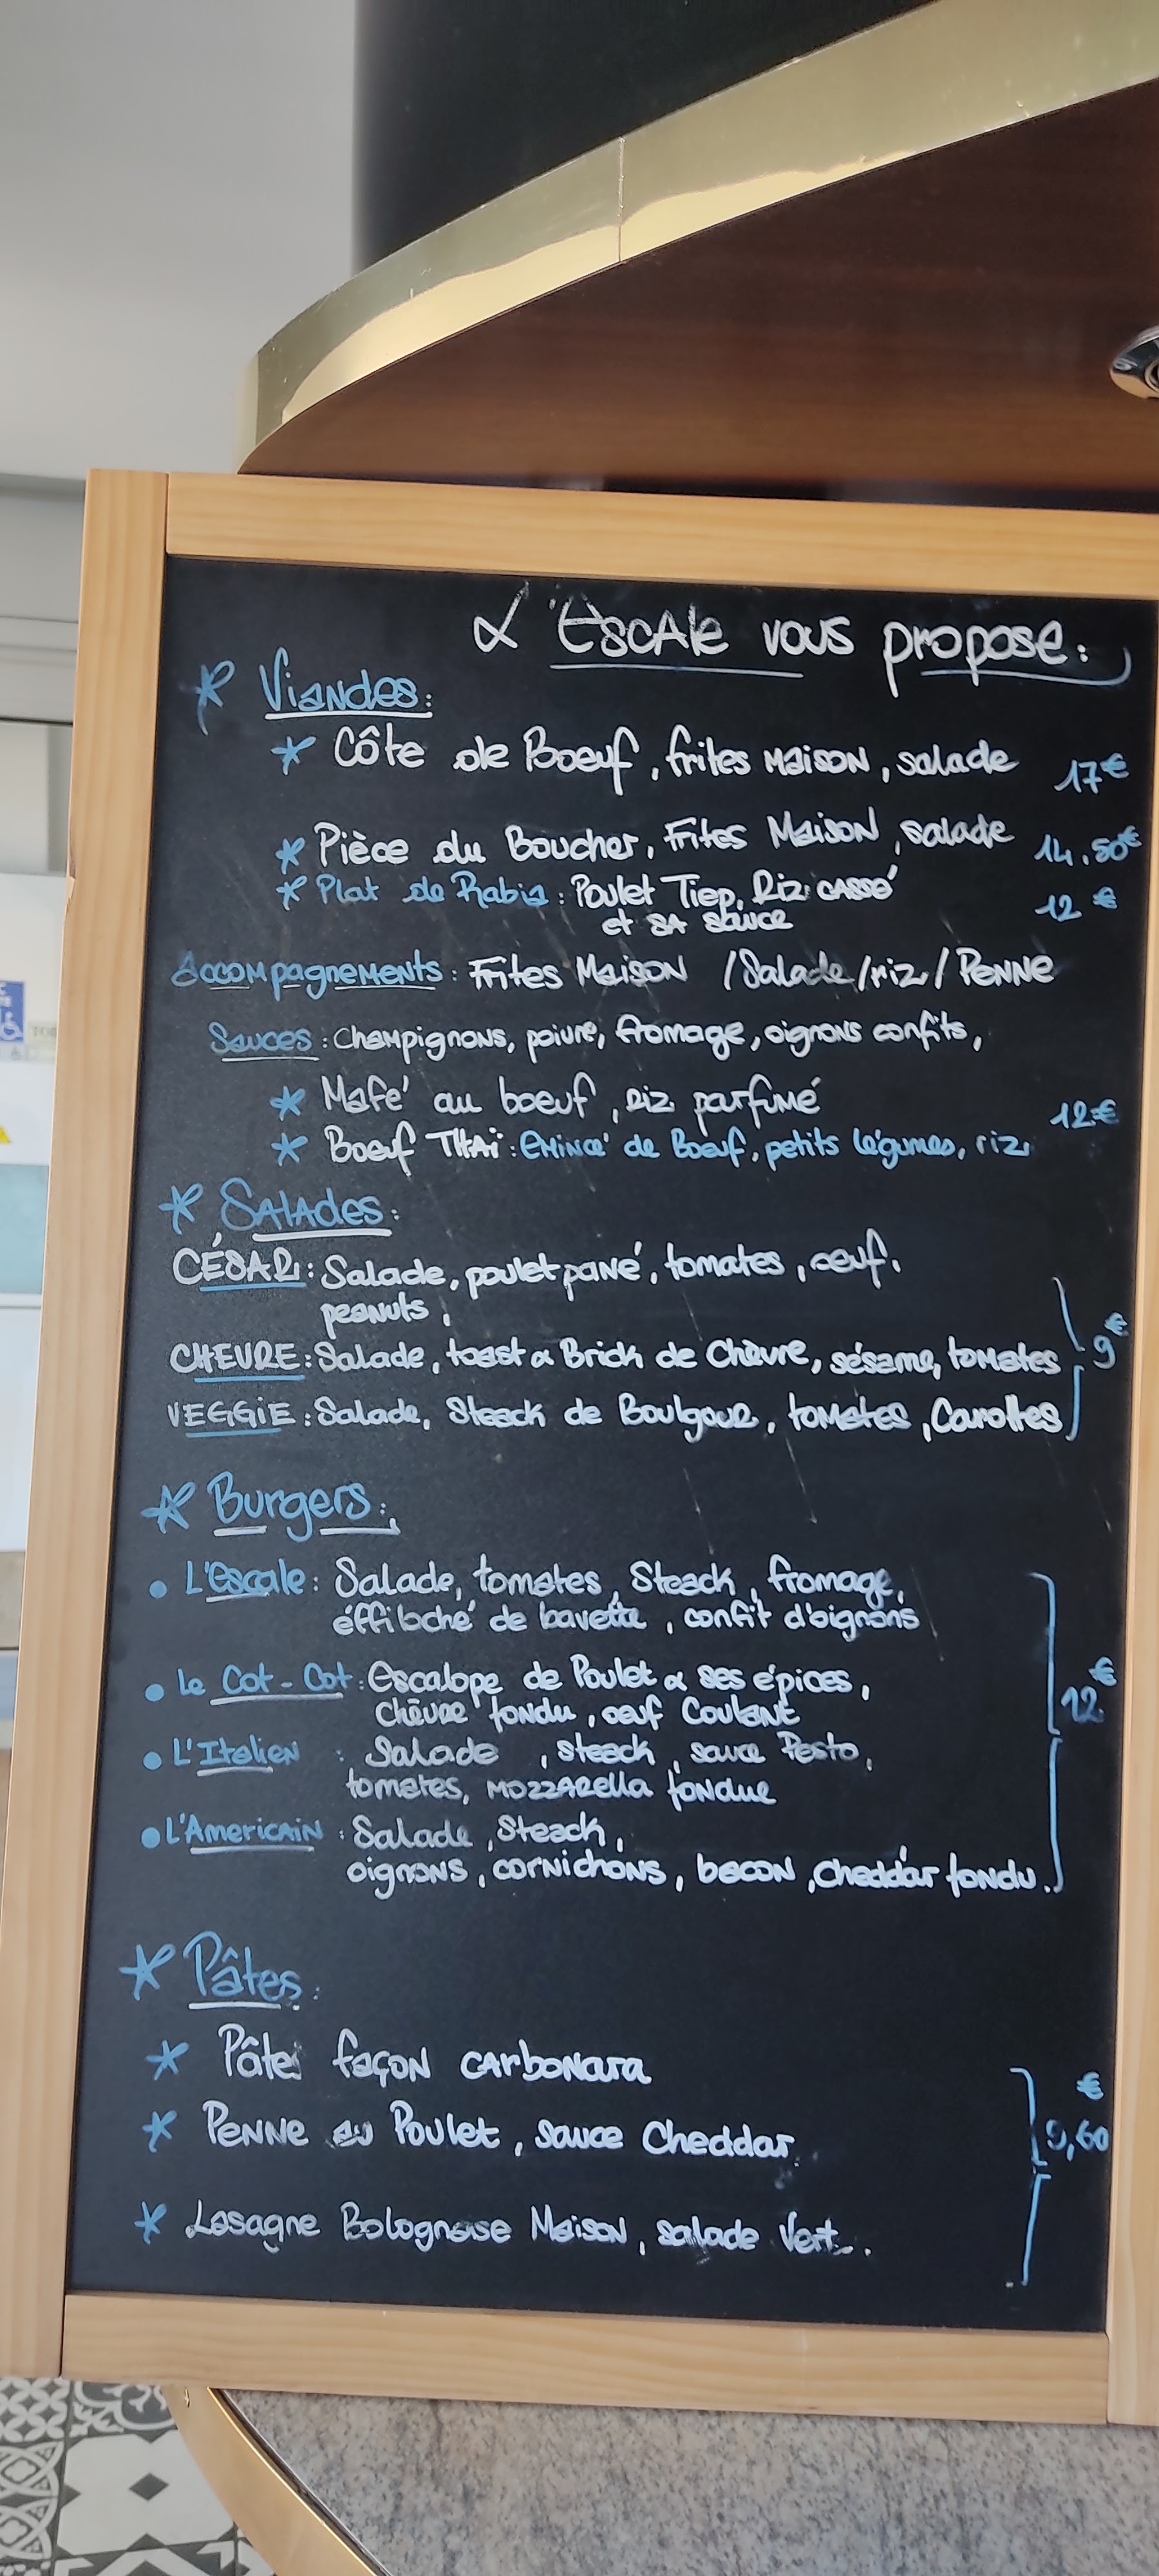 L'Escale vous propose :
* Viandes :
* Côte de Boeuf, frites Maison, salade 17€
* Pièce du Boucher, Frites Maison, salade 14,50€
* Plat de Rabia : Poulet Tiep, Riz cassé 12 €
et sa sauce
Accompagnements : Frites Maison / Salade / riz / Penne
Sauces : Champignons, poivre, fromage, oignons confits,
* Mafé au boeuf, Riz parfumé
12€
* Boeuf THAï : Emincé de Boeuf, petits légumes, riz
* Salades :
CÉSAR : Salade, poulet pané, tomates, oeuf,
peanuts,
CHEVRE : Salade, toast & Brick de Chèvre, sésame, tomates 9€
VEGGIE : Salade, Steack de Boulgour, tomates, Carottes
* Burgers :
• L'Escale : Salade, tomates, Steack, fromage,
éffiloché de bavette, confit d'oignons
• Le Cot-Cot : Escalope de Poulet & ses épices,
chèvre fondu, oeuf Coulant 12€
• L'Italien : Salade, steack, sauce Pesto,
tomates, mozzarella fondue
• L'Americain : Salade, Steack,
oignons, cornichons, bacon, cheddar fondu.
* Pâtes :
* Pâtes façon carbonara
* Penne au Poulet, sauce Cheddar 9,60 €
* Lasagne Bolognaise Maison, salade Vert.